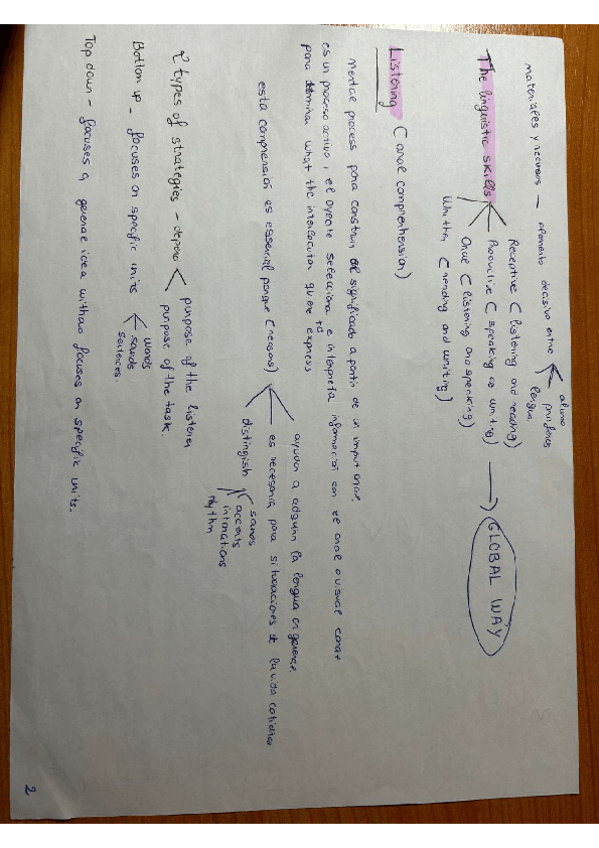 materiales y recursos — elemento decisivo entre
alumno
profesor
lengua.
The linguistic skills
Receptive (listening and reading)
Productive (speaking as writing)
Oral (listening and speaking)
Written (reading and writing)
GLOBAL WAY
Listening (oral comprehension)
mental process para construir el significado a partir de un input oral.
es un proceso activo, el oyente selecciona e interpreta información en el canal o visual
para determinar what the interlocutor quiere to express
esta comprensión es essencial porque (reasons)
ayudan a adquirir la lengua en general.
es necesaria para situaciones de la vida cotidiana
distinguish
sounds
accents
intonations
rhythm
2 types of strategies - depend
purpose of the listener
purpose of the task.
Bottom up - focuses on specific units
words
sounds
sentences.
Top down - focuses a general idea without focuses on specific units.
2